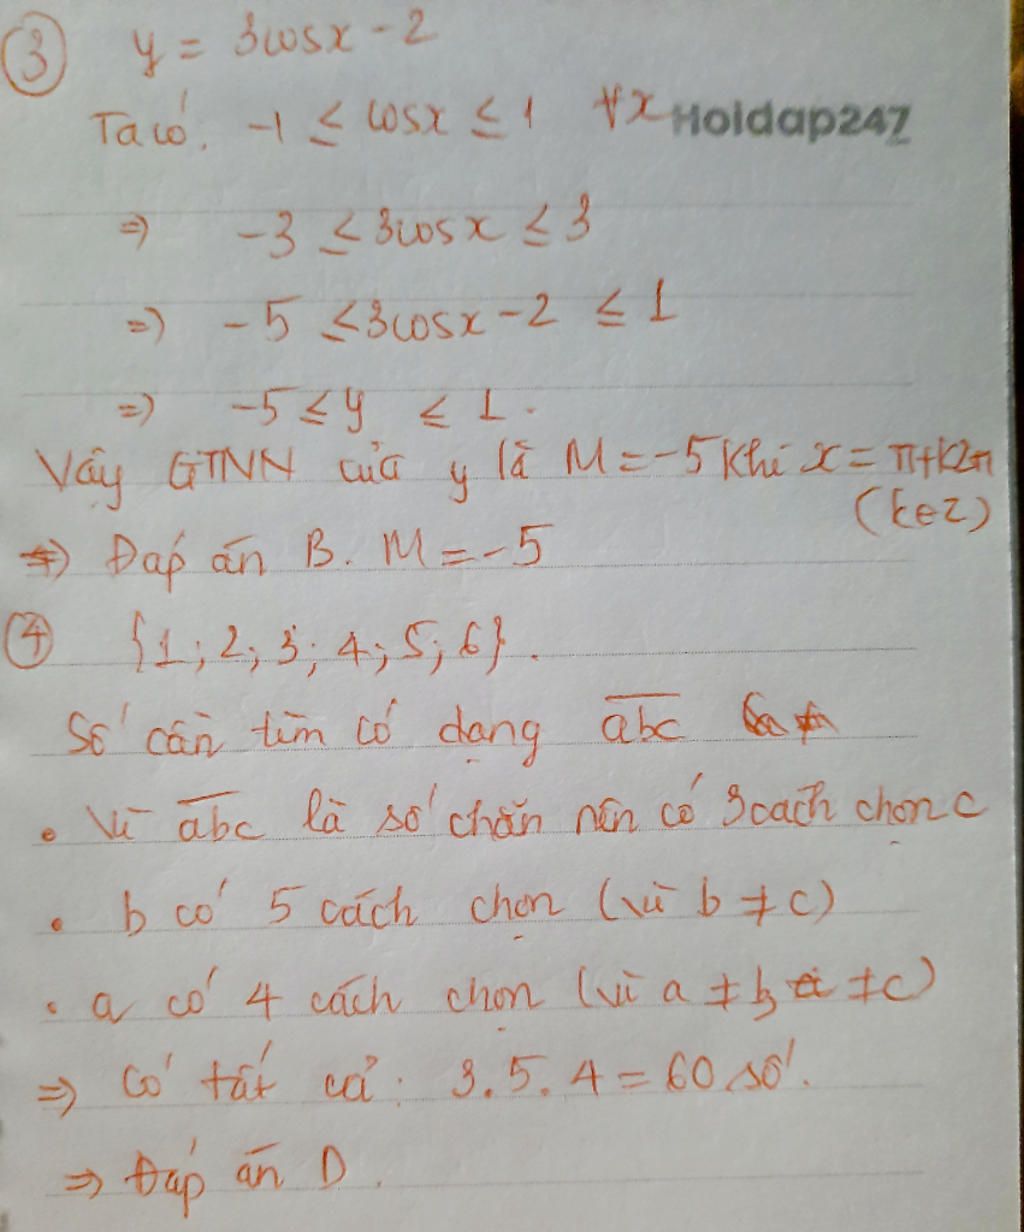 ③ y = 3cosx - 2
Ta có. -1 ≤ cosx ≤ 1 ∀x Hoidap247
⇒ -3 ≤ 3cosx ≤ 3
⇒ -5 ≤ 3cosx - 2 ≤ 1
⇒ -5 ≤ y ≤ 1.
Vậy GTNN của y là M = -5 khi x = π + k2π
(k∈Z)
⇒ Đáp án B. M = -5
④ {1; 2; 3; 4; 5; 6}.
Số cần tìm có dạng \overline{abc}
• Vì \overline{abc} là số chẵn nên có 3 cách chọn c
• b có 5 cách chọn (vì b ≠ c)
• a có 4 cách chọn (vì a ≠ b, ≠ c)
⇒ Có tất cả: 3.5.4 = 60 số.
⇒ Đáp án D.